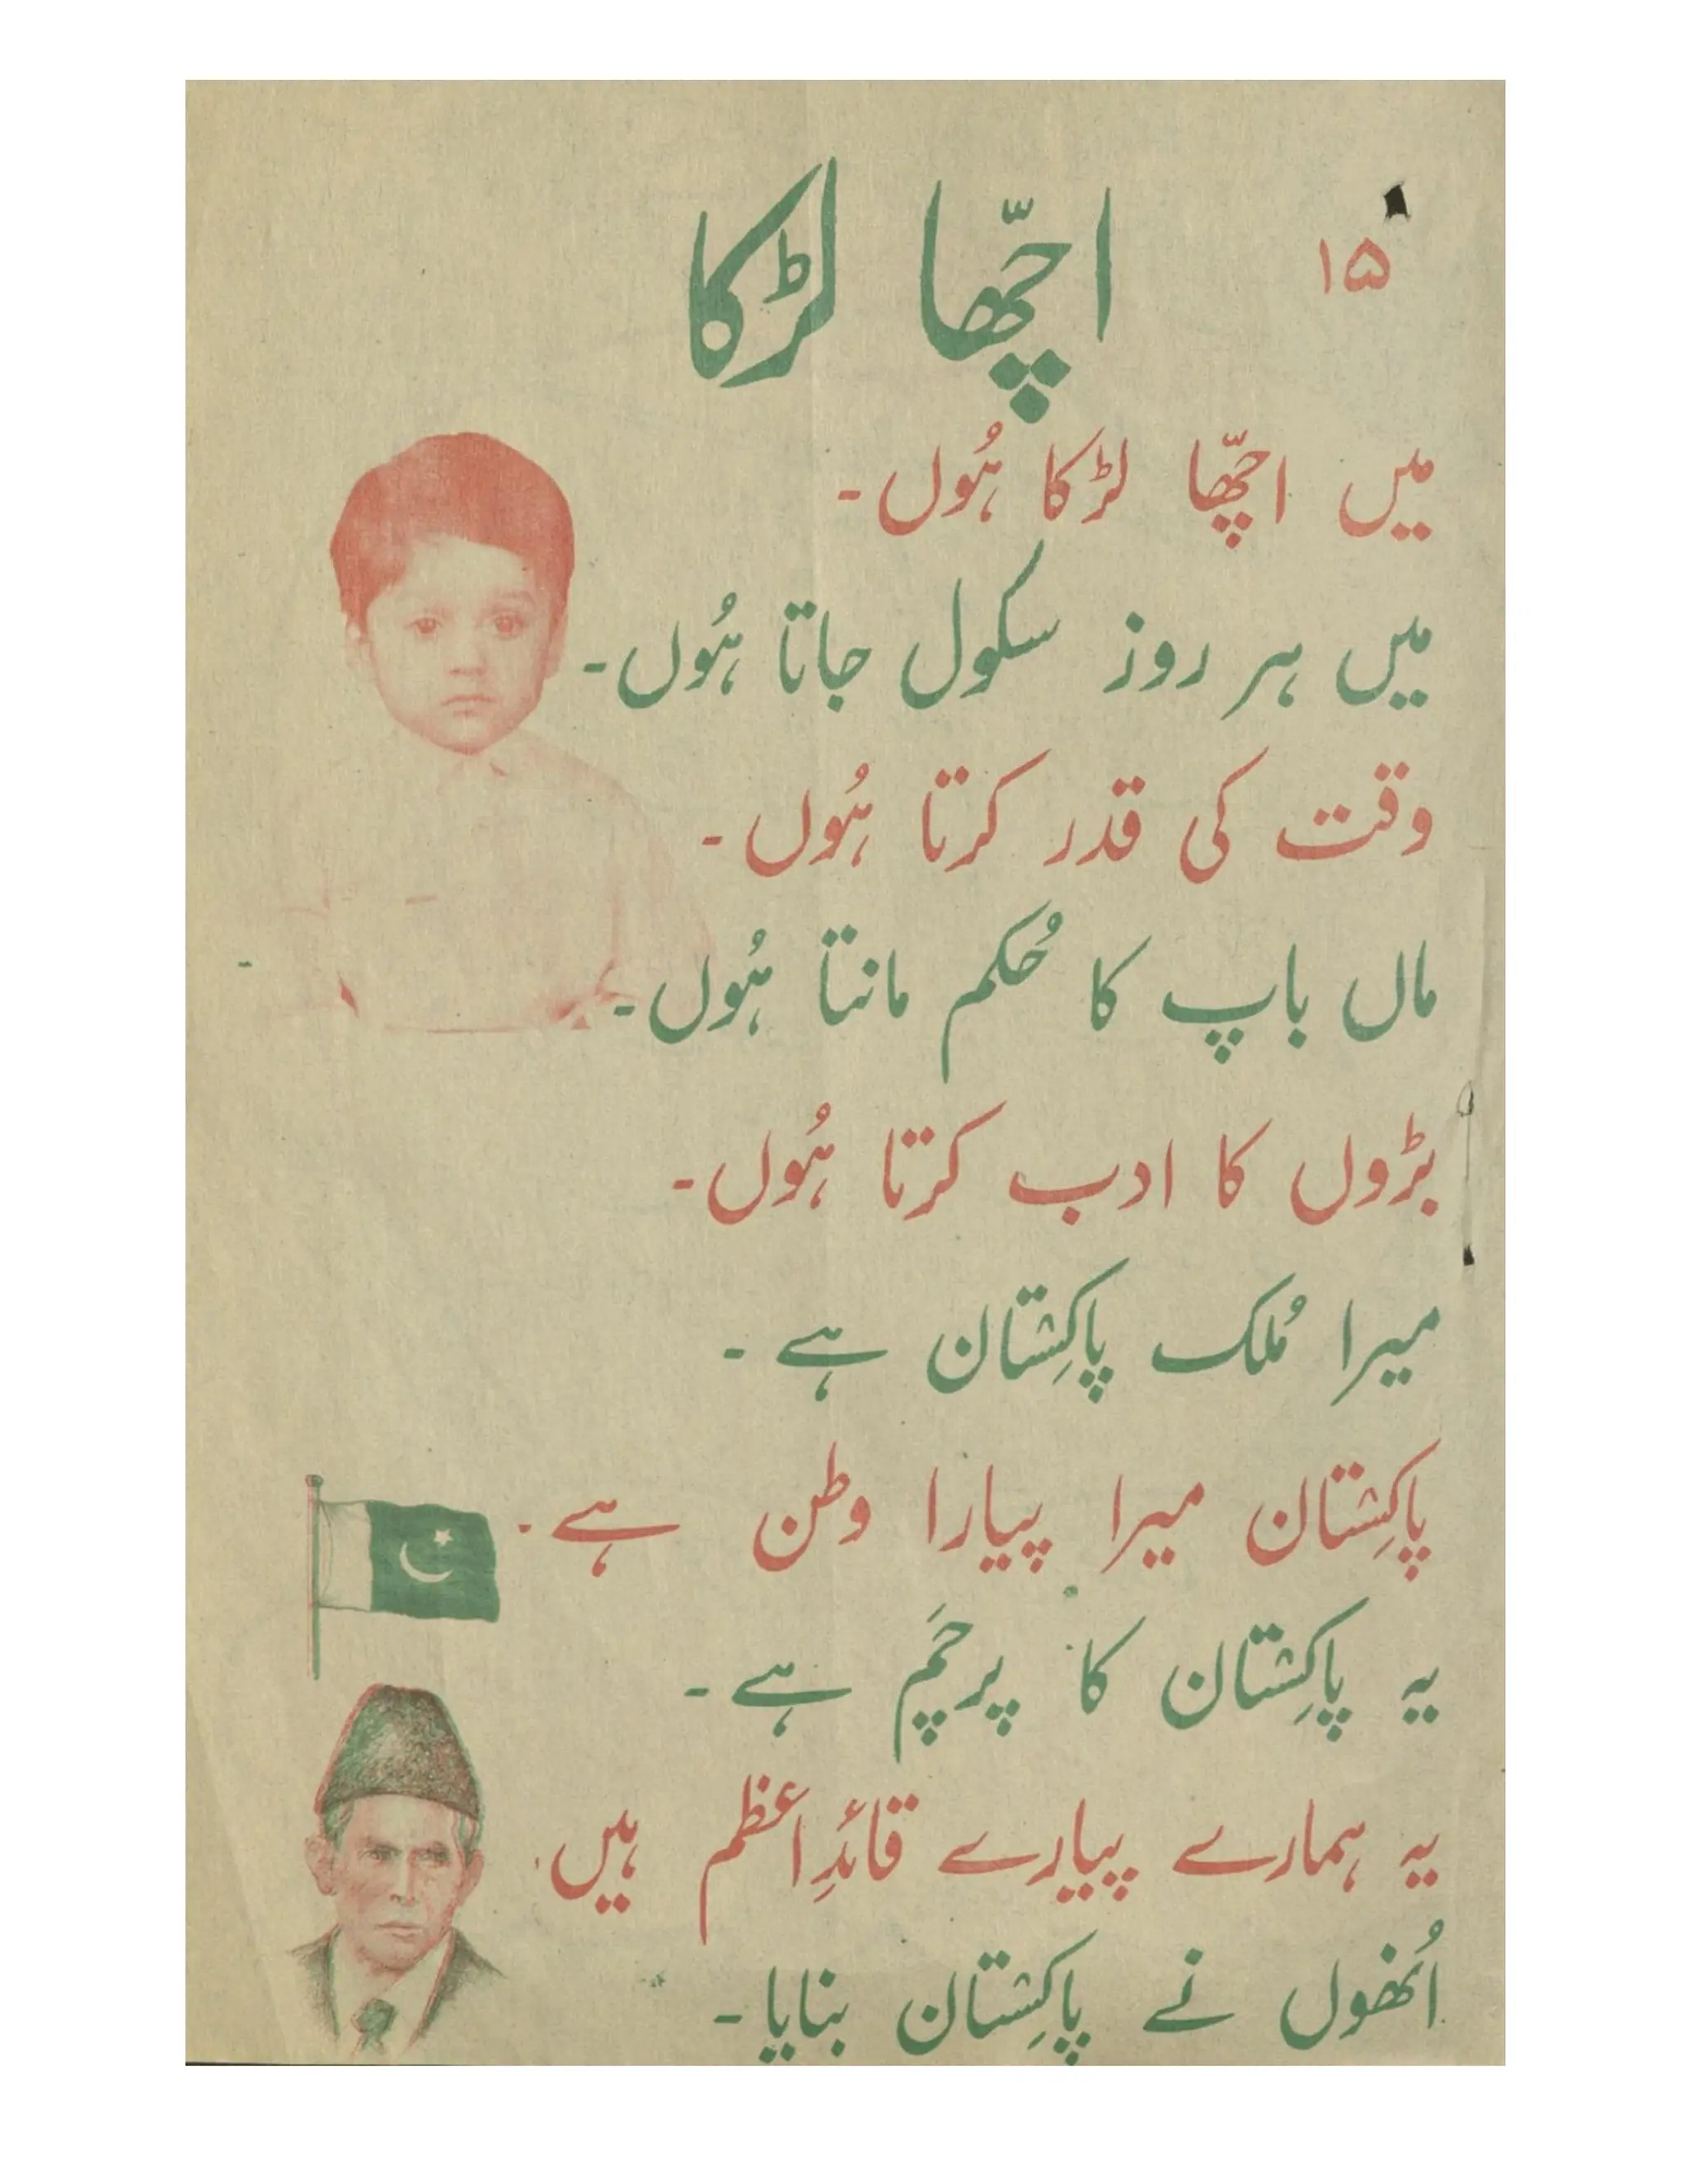 ۱۵
اچّھا لڑکا
میں اچّھا لڑکا ہُوں۔
میں ہر روز سکول جاتا ہُوں۔
وقت کی قدر کرتا ہُوں۔
ماں باپ کا حُکم مانتا ہُوں۔
بڑوں کا ادب کرتا ہُوں۔
میرا مُلک پاکِستان ہے۔
پاکِستان میرا پیارا وطن ہے۔
یہ پاکِستان کا پرچَم ہے۔
یہ ہمارے پیارے قائدِاعظم ہیں۔
اُنھوں نے پاکِستان بنایا۔